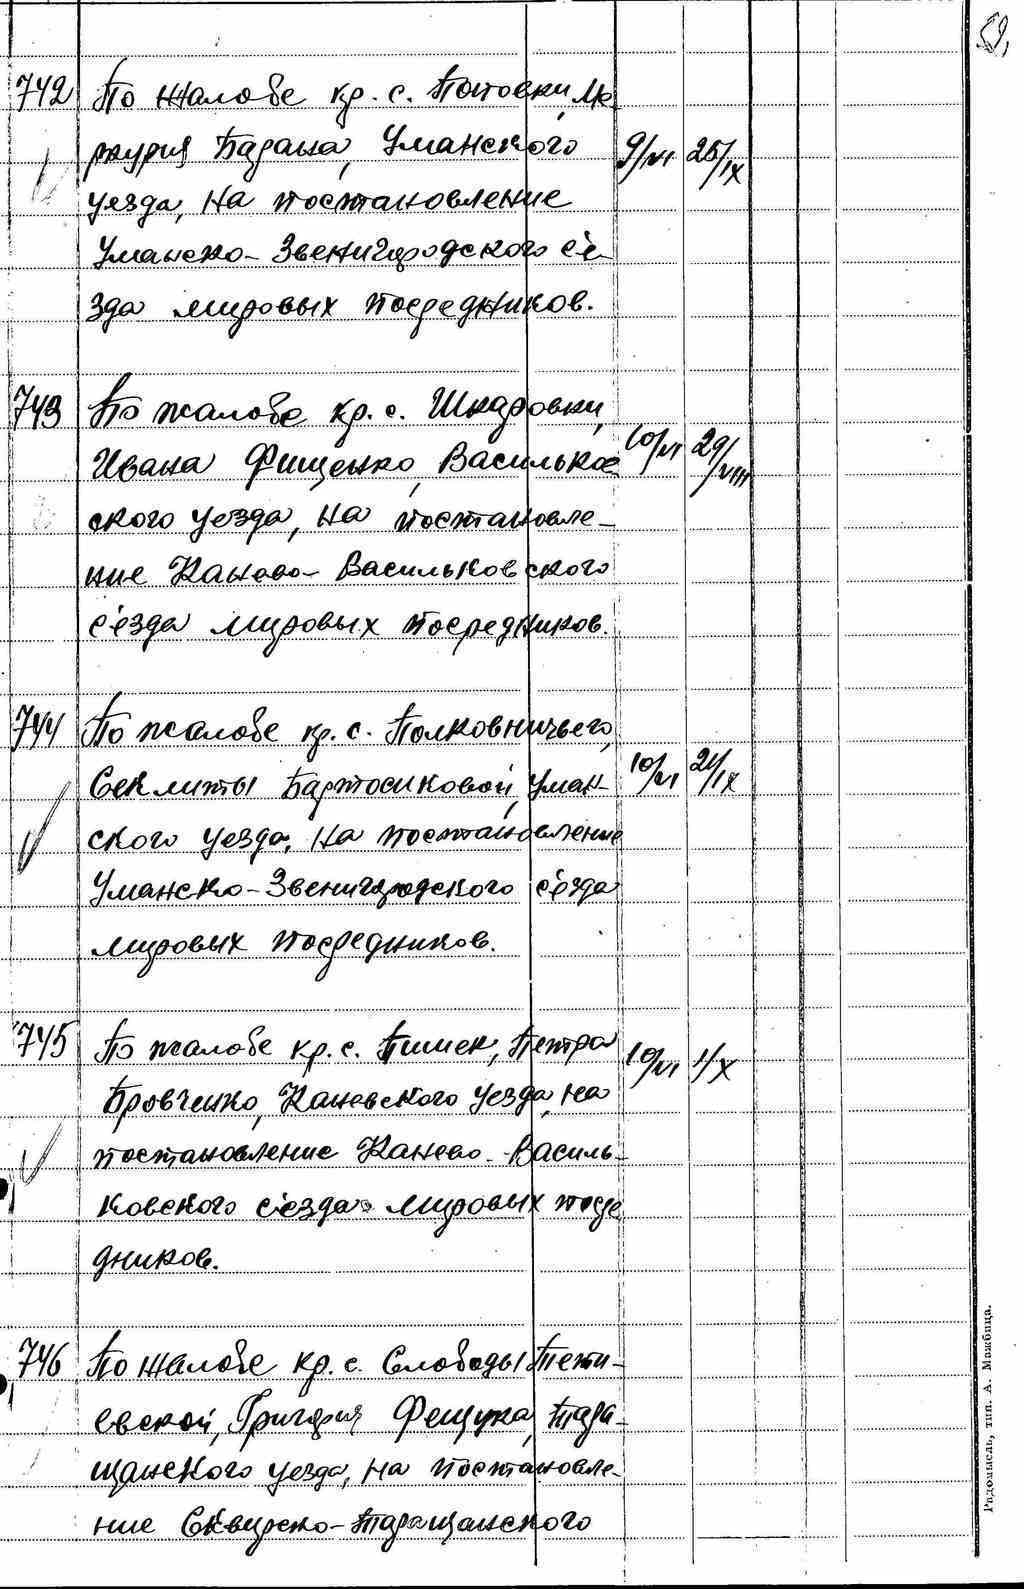 59.
742 По жалобе кр. с. Потовки, Ме-
ркурия Бадана, Уманского 9/VI 25/IX
уезда, на постановление
Уманско-Звенигородского с'е-
зда мировых посредников.
743 По жалобе кр. с. Шкаровки,
Ивана Фищенко, Васильков- 10/VI 29/VIII
ского уезда, на постановле-
ние Канево-Васильковского
с'езда мировых посредников.
744 По жалобе кр. с. Полковничьего,
Секлиты Бартосиковой, Уман- 10/VI 21/IX
ского уезда, на постановление
Уманско-Звенигородского с'езда
мировых посредников.
745 По жалобе кр. с. Пилек, Петра 10/VI 4/X
Бровченко, Каневского уезда, на
постановление Канево-Василь-
ковского с'езда мировых посре
дников.
746 По жалобе кр. с. Слободы Тети-
евской, Григория Фещука, Тара-
щанского уезда, на постановле-
ние Сквирско-Таращанского
Радомысль, тип. А. Мажбица.